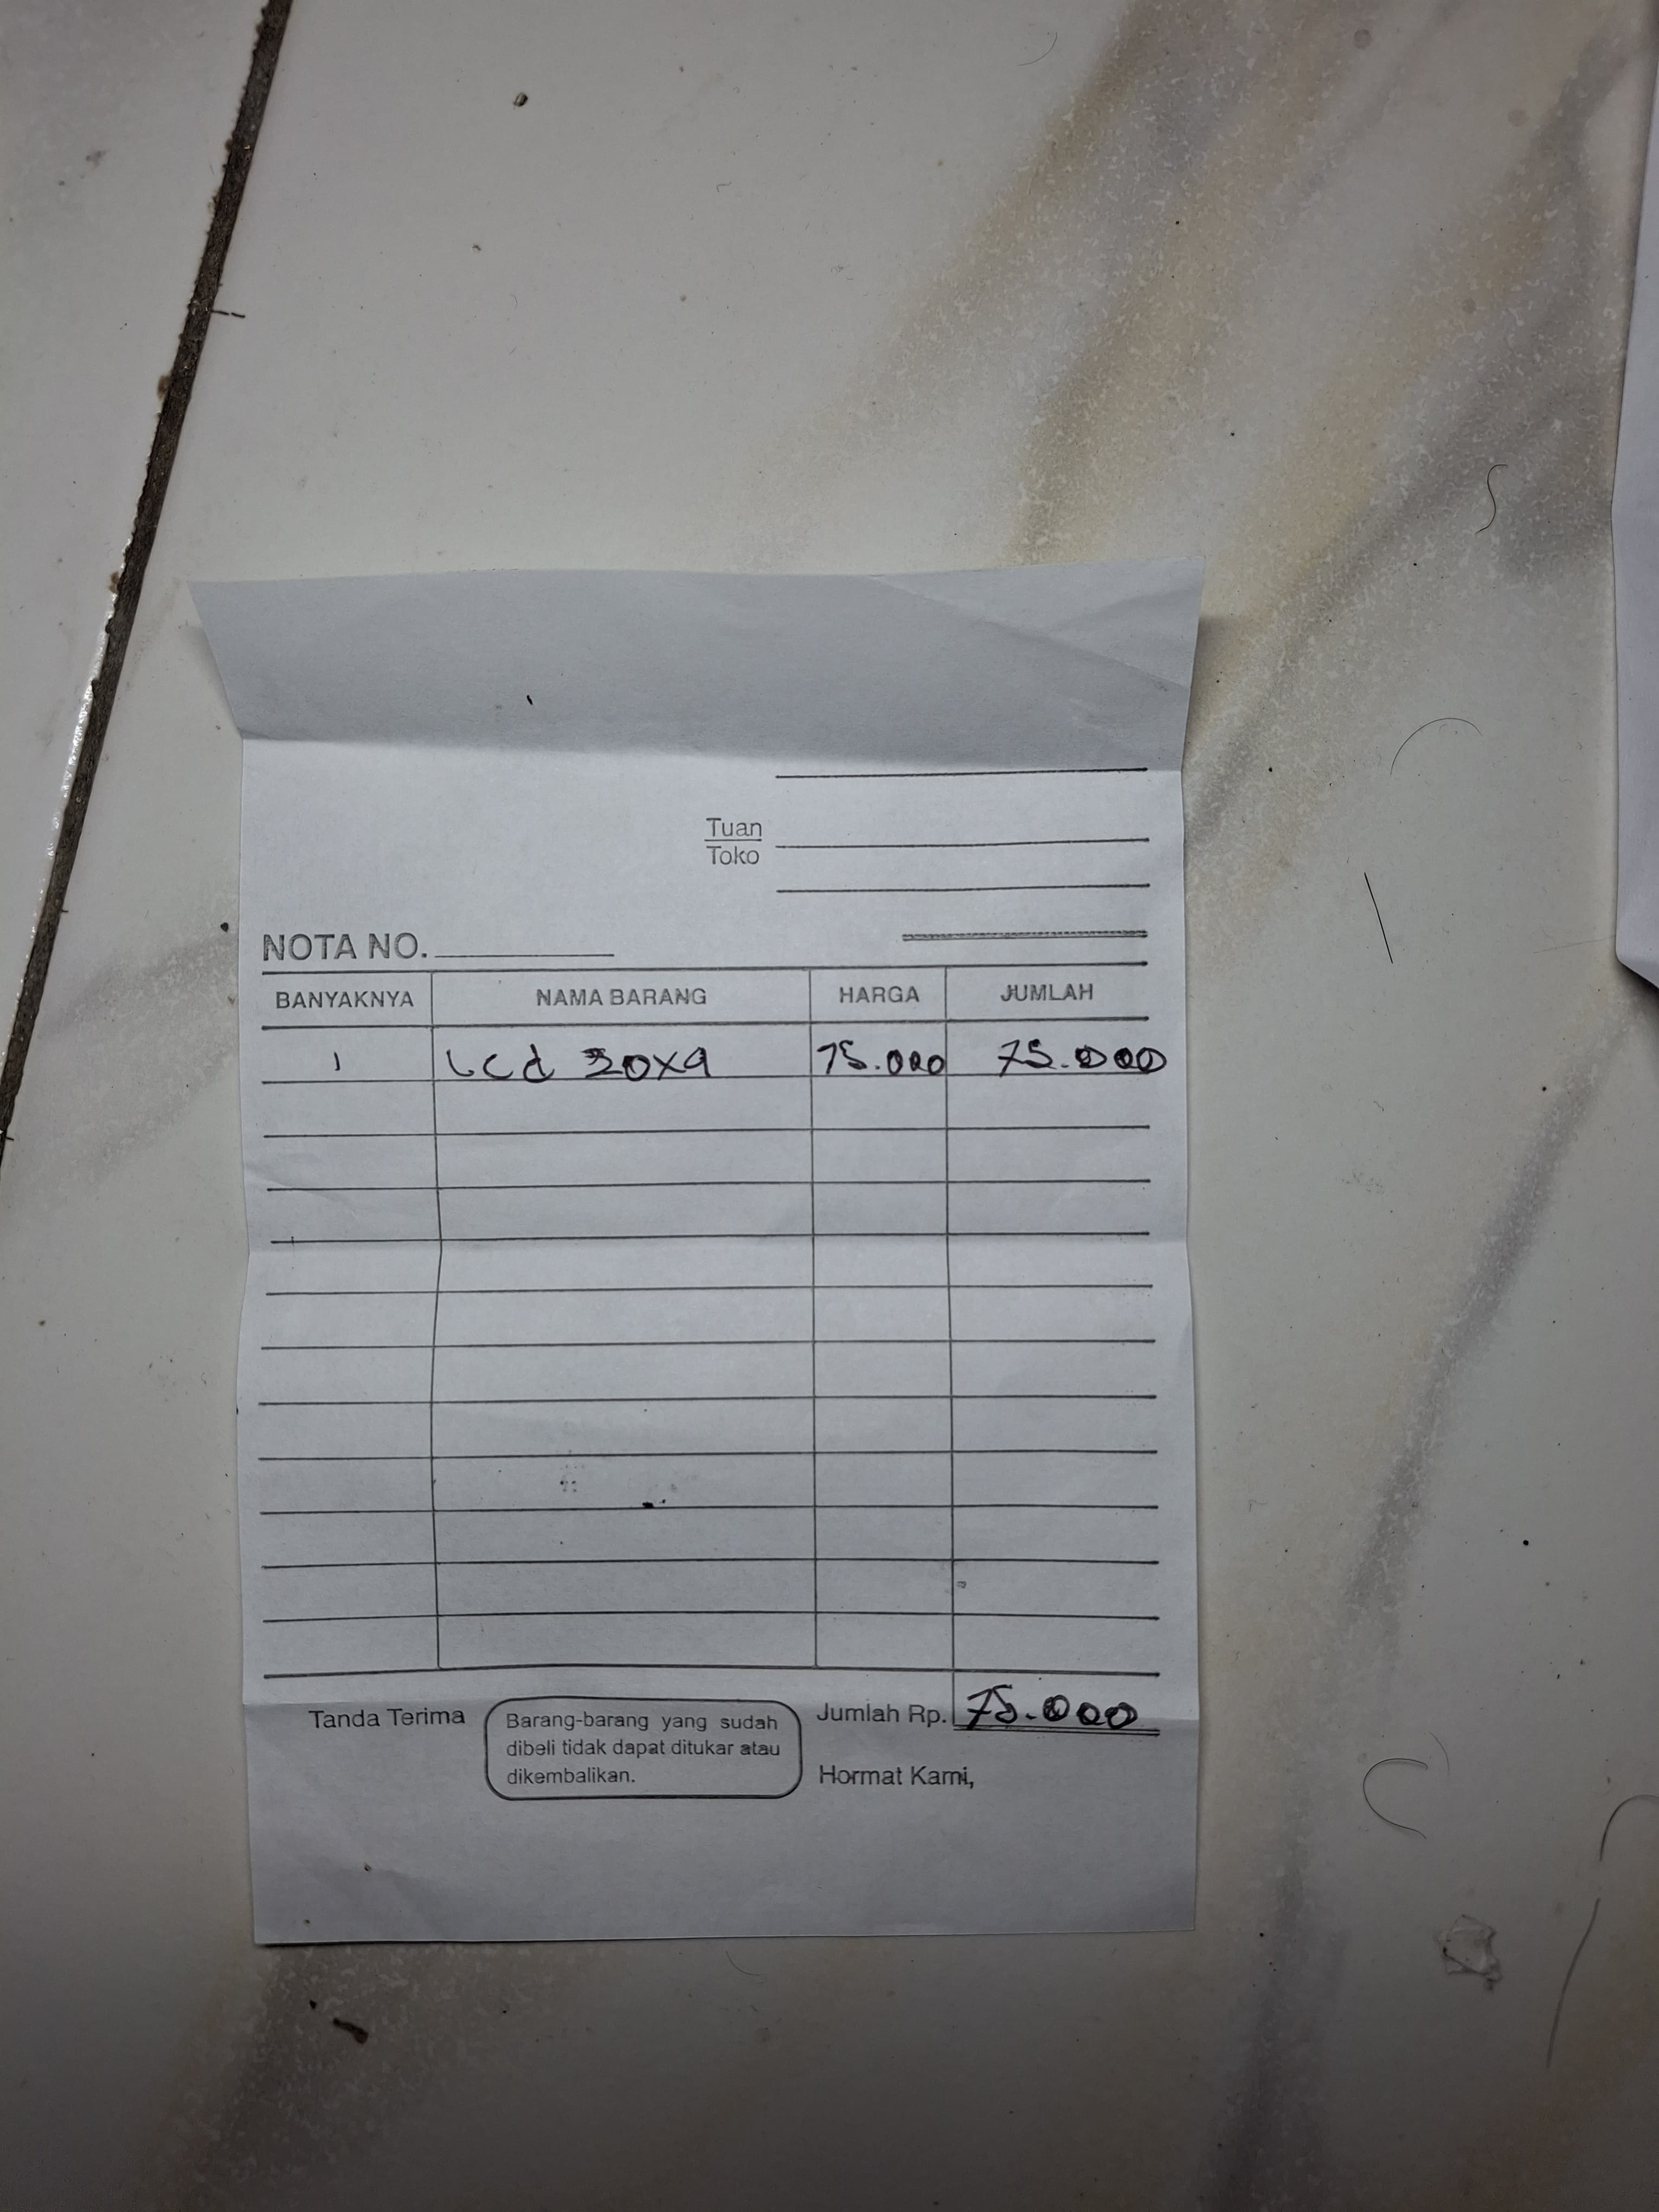 Tuan
Toko
NOTA NO.
BANYAKNYA NAMA BARANG HARGA JUMLAH
1 Lcd 20x4 75.000 75.000
Tanda Terima
Barang-barang yang sudah
dibeli tidak dapat ditukar atau
dikembalikan.
Jumlah Rp. 75.000
Hormat Kami,